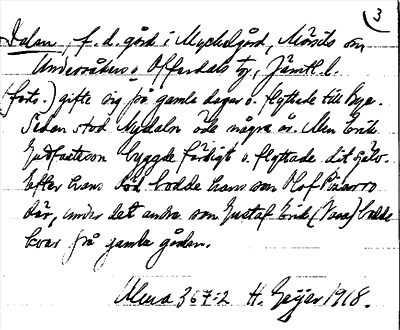 3
Dalen, f. d. gård i Myckelgård, Mörsils sn
Undersåkers o. Offerdals tg, Jämtl. l.
(forts.) gifte sig på gamla dagar o. flyttade till Bye.
Sedan stod Nydaln öde några år. Men Erik
Gustafsson byggde färdigt o. flyttade dit själv.
Efter hans död bodde hans son Olof Pizarro
där, under det andre son Gustaf Erik (Vasa) bodde
kvar på gamla gården.
Ulma 367:2 H. Geijer 1918.